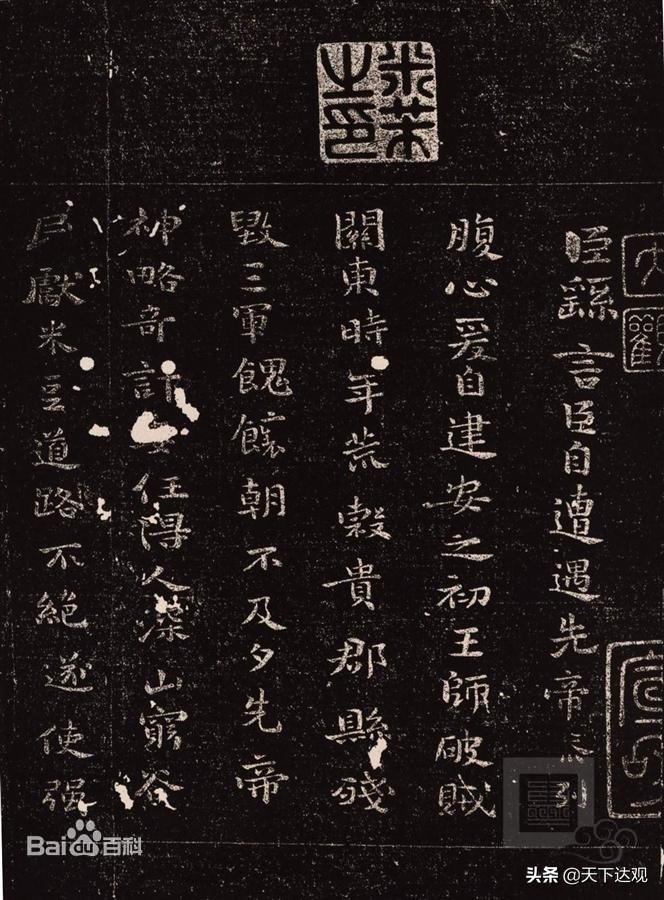 米芾之印
大觀
臣繇言臣自遭遇先帝忝列
腹心爰自建安之初王師破賊
關東時年荒穀貴郡縣殘
毀三軍餽饟朝不及夕先帝
神略奇計任得人深山窮谷
民獻米豆道路不絕遂使强
Baidu百科
头条 @天下达观